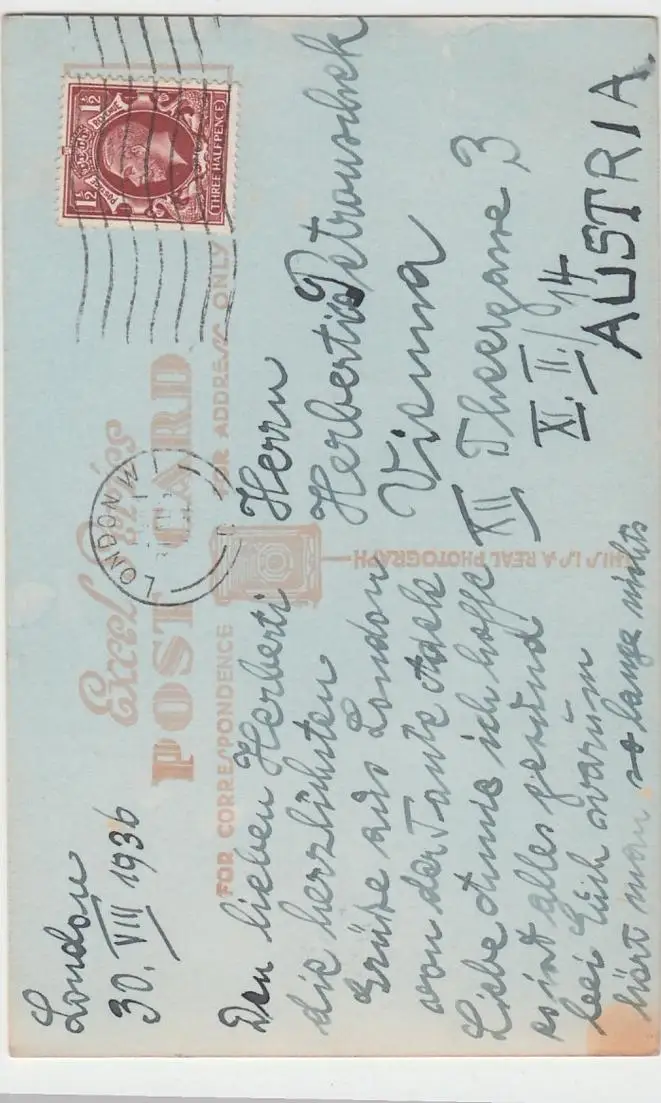 London
30. VIII 1936
Excel Series
POST CARD
FOR CORRESPONDENCE
FOR ADDRESS ONLY
THIS IS A REAL PHOTOGRAPH
LONDON W
POSTAGE REVENUE
1½ 1½
THREE HALFPENCE
Den lieben Herberti
die herzlichsten
Grüße aus London
von der Tante Adele
Liebe Annie ich hoffe
es ist alles gesund
bei Euch warum
hört man so lange nichts
Herrn
Herberti Petrouschek
Vienna
XII Theergasse 3
XI. II./14
AUSTRIA.